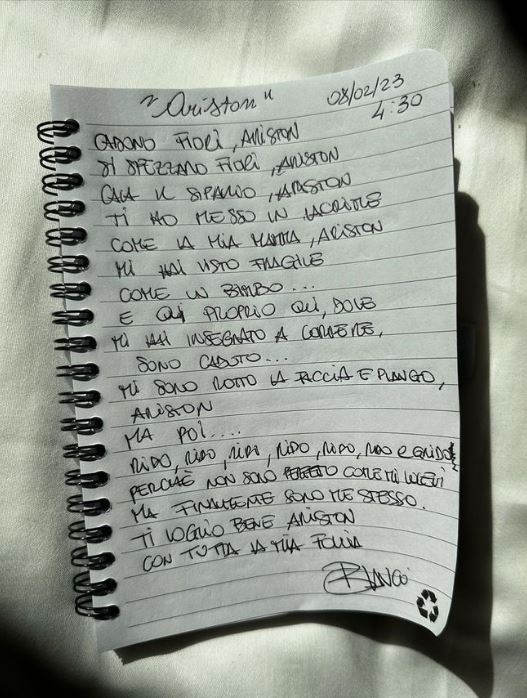 "Ariston"
08/02/23
4:30
CADONO FIORI, ARISTON
SI SPEZZANO FIORI, ARISTON
CALA IL SIPARIO, ARISTON
TI HO MESSO IN LACRIME
COME LA MIA MAMMA, ARISTON
MI HAI VISTO FRAGILE
COME UN BIMBO...
E QUI PROPRIO QUI, DOVE
MI HAI INSEGNATO A CORRERE,
SONO CADUTO...
MI SONO ROTTO LA FACCIA E PIANGO,
ARISTON
MA POI....
RIDO, RIDO, RIDO, RIDO, RIDO, RIDO E GRIDO
PERCHÈ NON SOLO COME MI VOLEVI
MA FINALMENTE SONO ME STESSO.
TI VOGLIO BENE ARISTON
CON TUTTA LA MIA FOLLIA
BLANCO